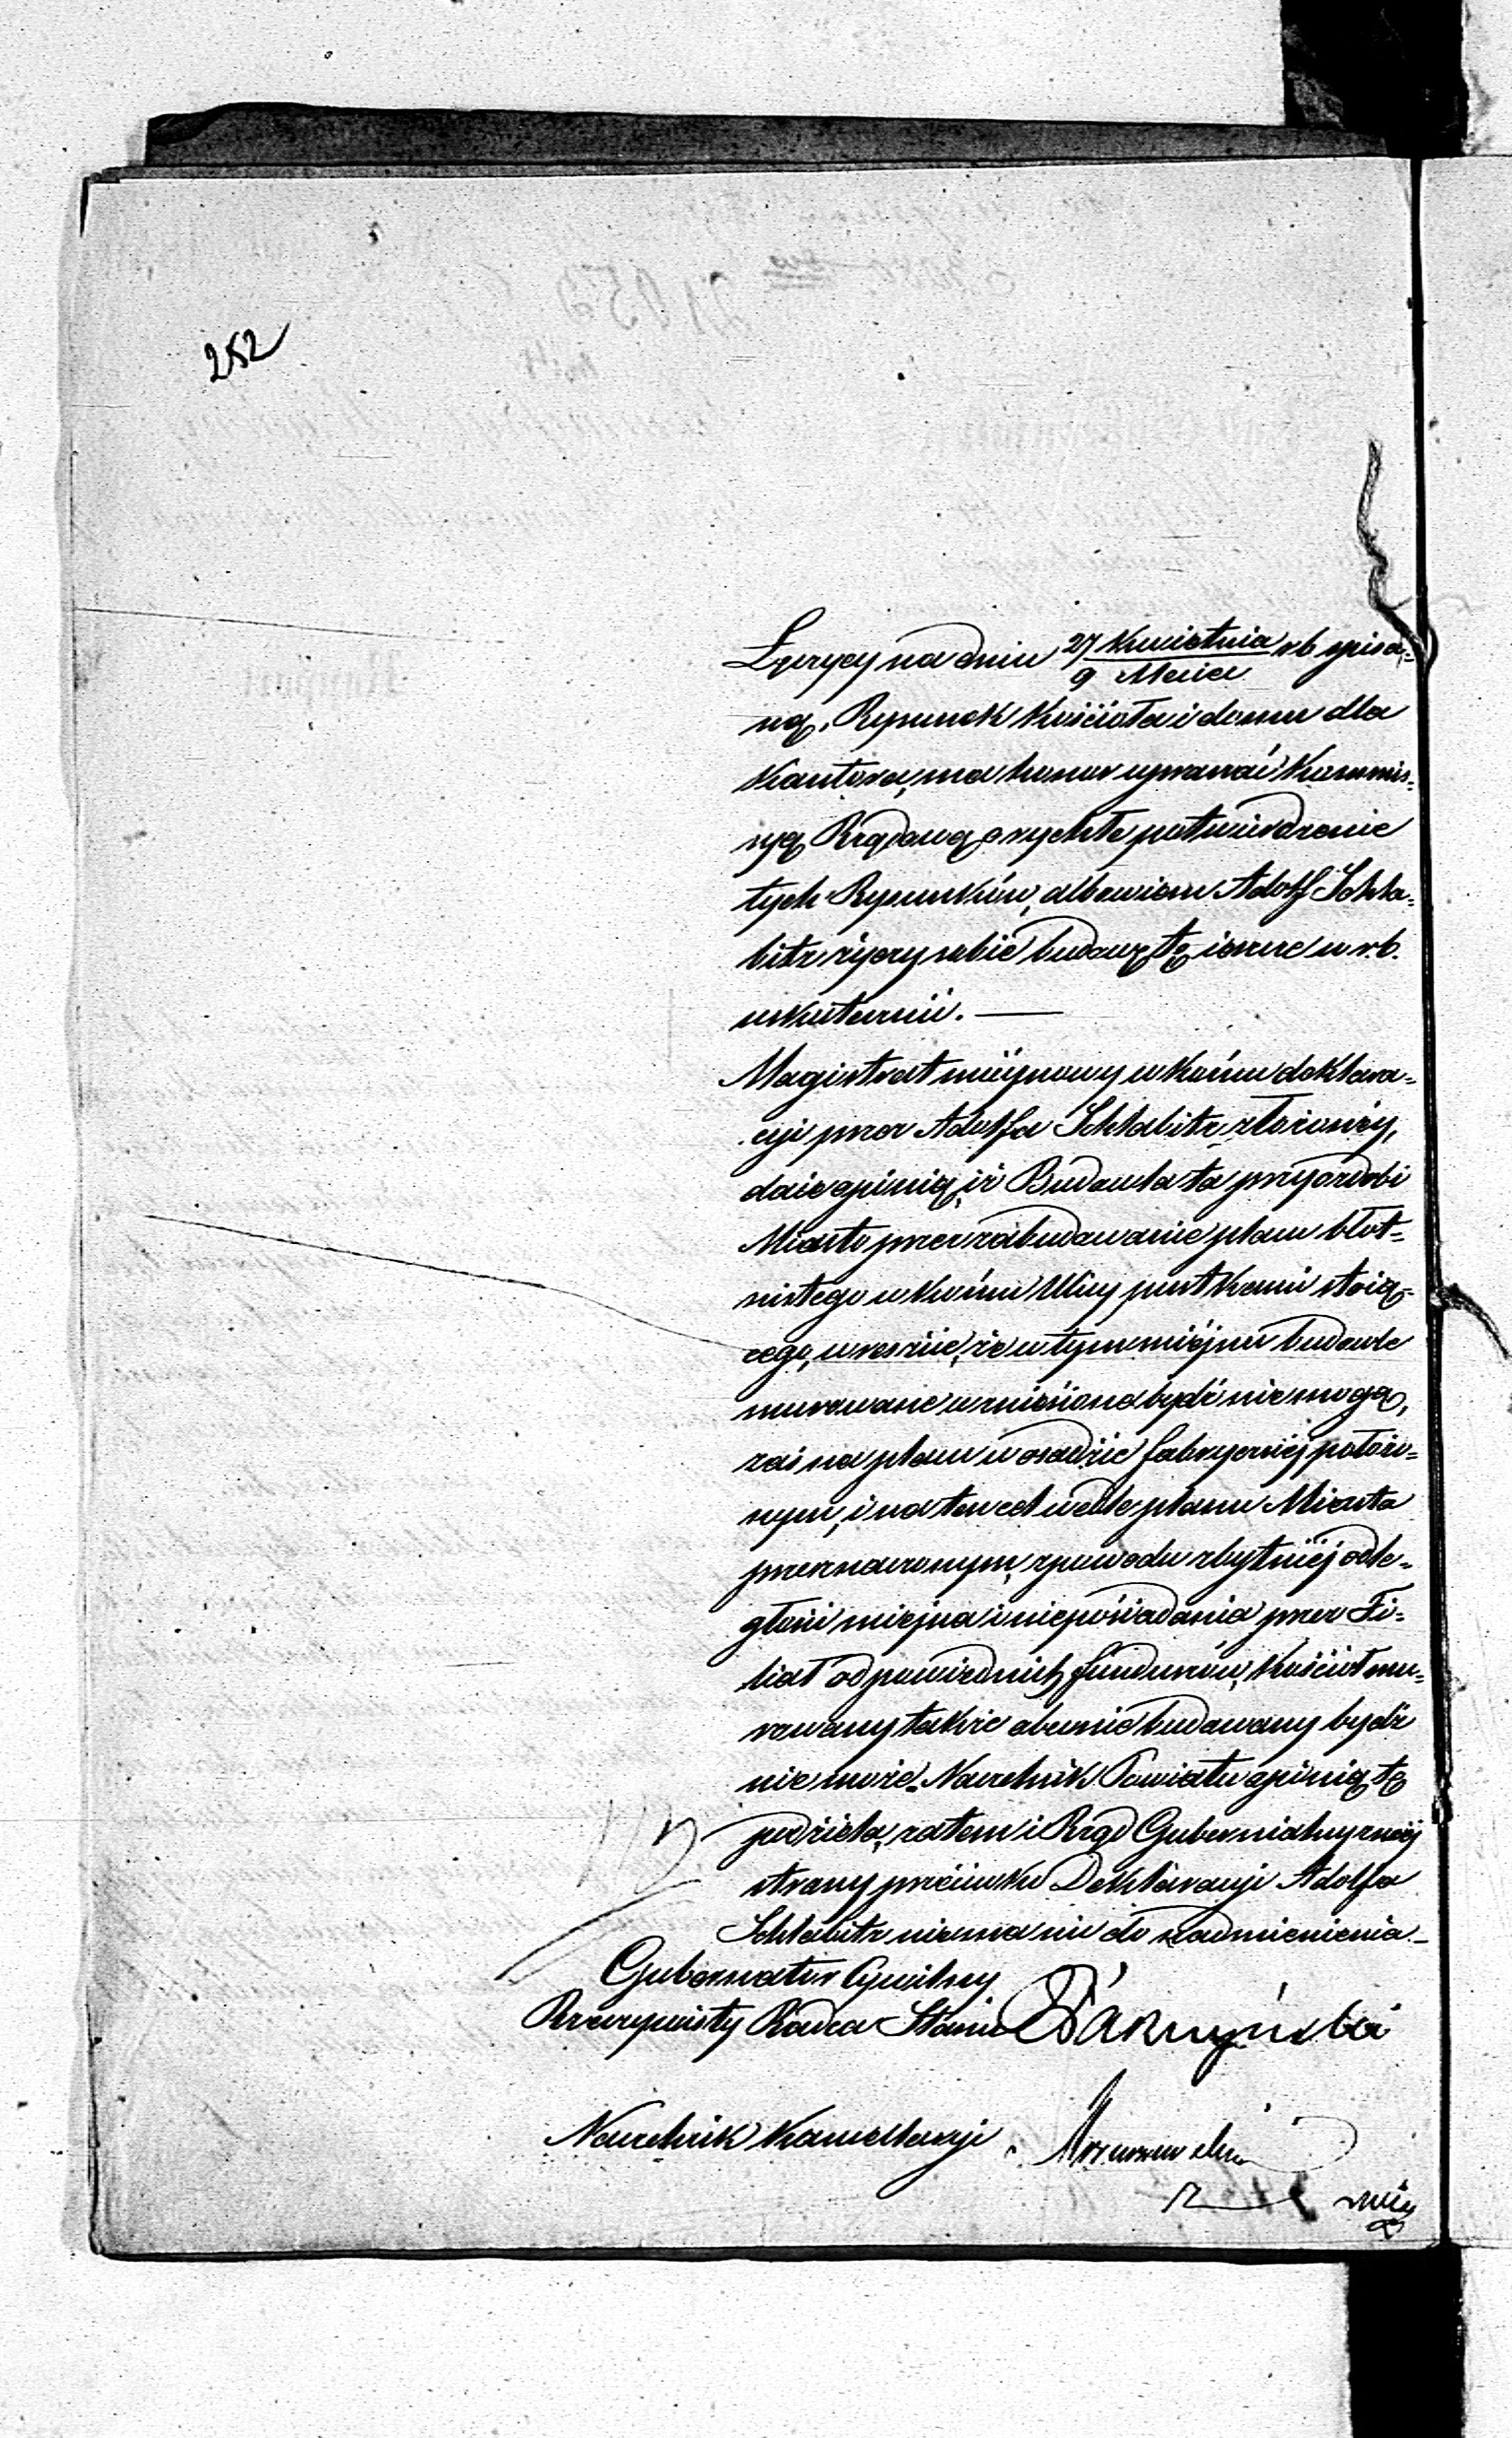 252
Łęczycy na dniu 27 Kwietnia r.b. spisa-
9 Maia
ną, Rysunek Kościoła i domu dla
Kantora, ma honor upraszać Kommis-
syą Rządową o rychłe potwierdzenie
tych Rysunków, albowiem Adolf Schla-
bitz życzy sobie budowę tę ieszcze w r.b.
uskutecznić. —
Magistrat mieyscowy w końcu deklara-
cyi przez Adolfa Schlabitz złożonéy,
daie opinią, iż Budowla ta przyozdobi
Miasto przez zabudowanie placu błot-
nistego w końcu Ulicy pustkami stoią-
cego, w reszcie, że w tym miéjscu budowle
murowane wzniesione bydź nie mogą,
zaś na placu w osadzie fabrycznéj położo-
nym, i na ten cel wedle planu Miasta
przeznaczonym, z powodu zbytniéj odle-
głości miejsca i nieposiadania przez Fi-
liał odpowiednich funduszów, Kościół mu-
rowany także obecnie budowany bydź
nie może. Naczelnik Powiatu opinią tę
podziela, zatem i Rząd Gubernialny z swéj
strony przeciwko Deklaracyi Adolfa
Schlabitz niema nic do nadmienienia. –
Gubernator Cywilny
Rzeczywisty Radca Stanu
Naczelnik Kancellaryi